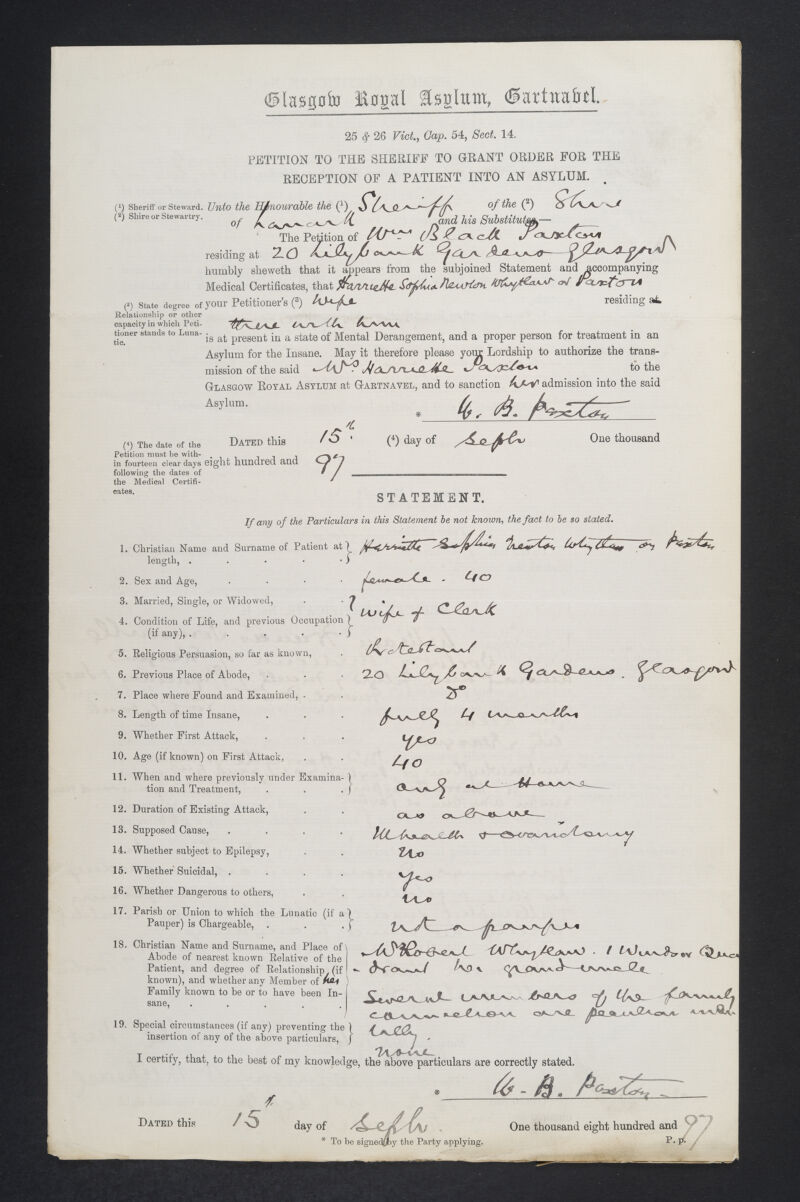 Glasgow Royal Asylum, Gartnavel.
25 & 26 Vict., Cap. 54, Sect. 14.
PETITION TO THE SHERIFF TO GRANT ORDER FOR THE
RECEPTION OF A PATIENT INTO AN ASYLUM.
(1) Sheriff or Steward.
(2) Shire or Stewartry.
Unto the Honourable the (1) Sheriff of the (2) Shire
of Lanark and his Substitutes,—
The Petition of Wm Black Paxton
residing at 20 Lilybank Gardens Glasgow
humbly sheweth that it appears from the subjoined Statement and accompanying
Medical Certificates, that Harriette Sophia Newton Whytlaw or Paxton
(3) State degree of
Relationship or other
capacity in which Peti-
tioner stands to Luna-
tic.
your Petitioner's (3) Wife residing at
there with him
is at present in a state of Mental Derangement, and a proper person for treatment in an
Asylum for the Insane. May it therefore please your Lordship to authorize the trans-
mission of the said Mrs Harriette Paxton to the
GLASGOW ROYAL ASYLUM at GARTNAVEL, and to sanction her admission into the said
Asylum.
* W. B. Paxton
(4) The date of the
Petition must be with-
in fourteen clear days
following the dates of
the Medical Certifi-
cates.
DATED this 15th (4) day of Septr One thousand
eight hundred and 97
STATEMENT.
If any of the Particulars in this Statement be not known, the fact to be so stated.
1. Christian Name and Surname of Patient at
length, . . . . . Harriette Sophia Newton Whytlaw or Paxton
2. Sex and Age, . . . . female. 40
3. Married, Single, or Widowed, . .
4. Condition of Life, and previous Occupation
(if any), . . . . . wife of Clerk
5. Religious Persuasion, so far as known, . Protestant
6. Previous Place of Abode, . . . 20 Lilybank Gardens. Glasgow
7. Place where Found and Examined, . . Do
8. Length of time Insane, . . . fully 4 months
9. Whether First Attack, . . . yes
10. Age (if known) on First Attack, . . 40
11. When and where previously under Examina-
tion and Treatment, . . . only at Home
12. Duration of Existing Attack, . . as above
13. Supposed Cause, . . . . Ill health & ovariotomy
14. Whether subject to Epilepsy, . . No
15. Whether Suicidal, . . . . yes
16. Whether Dangerous to others, . . no
17. Parish or Union to which the Lunatic (if a
Pauper) is Chargeable, . . . not a pauper
18. Christian Name and Surname, and Place of
Abode of nearest known Relative of the
Patient, and degree of Relationship (if
known), and whether any Member of her
Family known to be or to have been In-
sane, . . . . .
Mr Robert Whytlaw. 1 Windsor Qua
-drant her grand uncle
Several members of the family
connection are peculiar men
tally.
19. Special circumstances (if any) preventing the
insertion of any of the above particulars,
none
I certify, that, to the best of my knowledge, the above particulars are correctly stated.
* W. B. Paxton
DATED this 15th day of Septr. One thousand eight hundred and 97
* To be signed by the Party applying.
P. p.